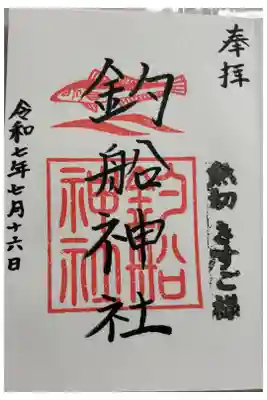 奉拝
きすご様
釣船神社
釣船
神社
令和七年七月十六日